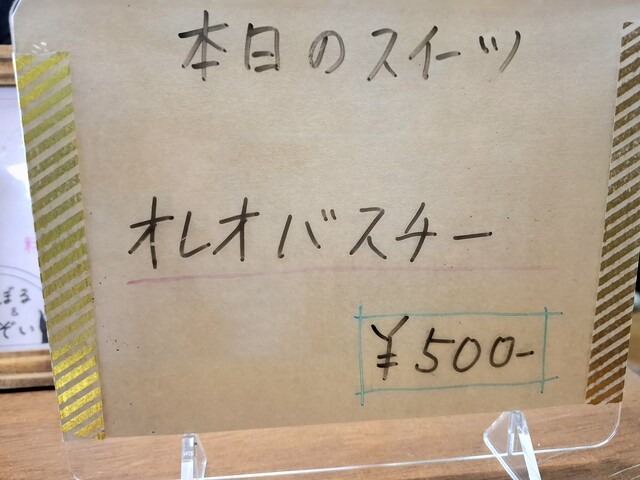 本日のスイーツ
オレオバスチー
¥500-
ぼる
&
ぞい